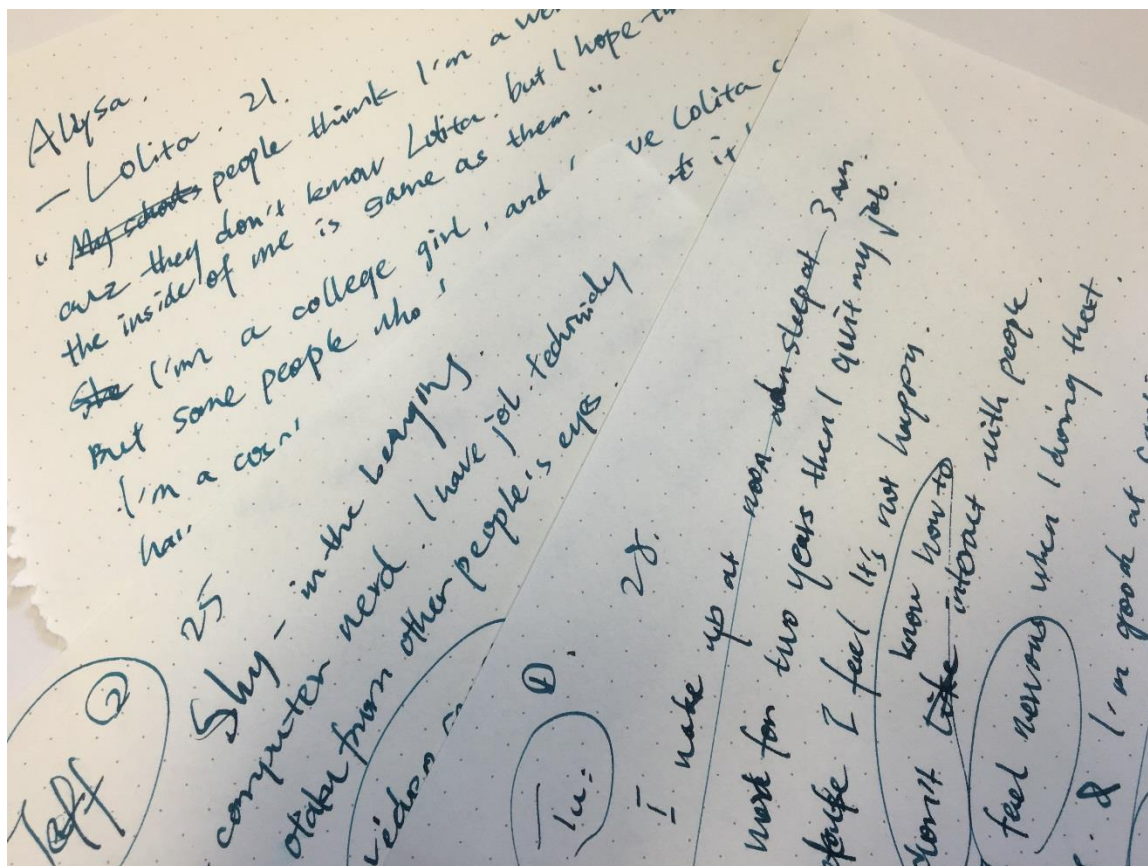 Alysa.
- Lolita. 21.
" My schools people think I'm a we
cuz they don't know Lolita. but I hope th
the inside of me is same as them."
She I'm a college girl, and I ve Lolita
But some people who
I'm a cos
hai
Jeff
②
25
Shy - in the beginning.
computer nerd. I have job. technically
otaku from other people's eyes.
Tu.
①
28.
I wake up at noon. and sleep at 3 AM.
work for two years then I quit my job.
I feel It's not happy.
don't like know how to interact with people.
feel nervous when I doing that.
& I'm good at